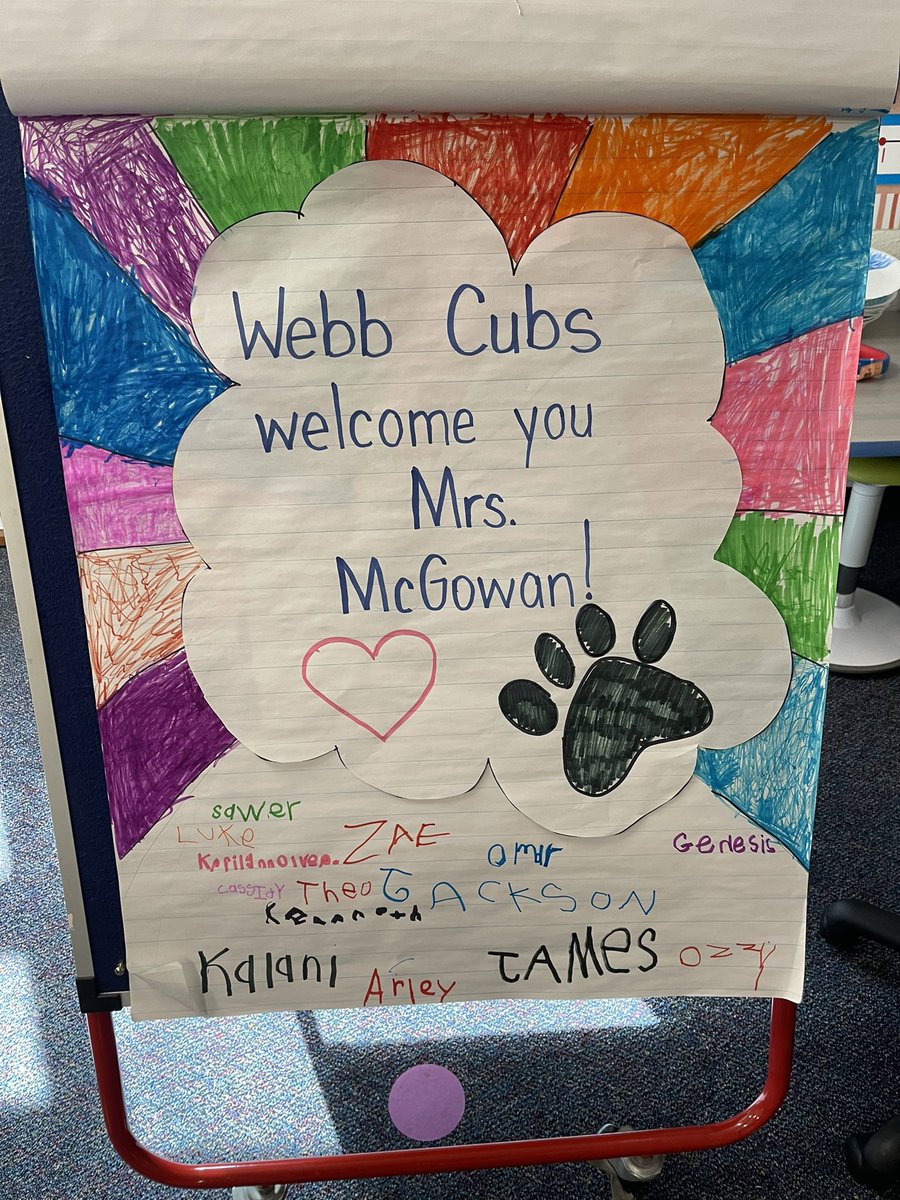 Webb Cubs
welcome you
Mrs.
McGowan!
sawer
LUKE
ZAE
omar
Genesis
CassIdy
Theo
JACKSON
Kenneth
Kalani
Arley
JAMes
ozzy